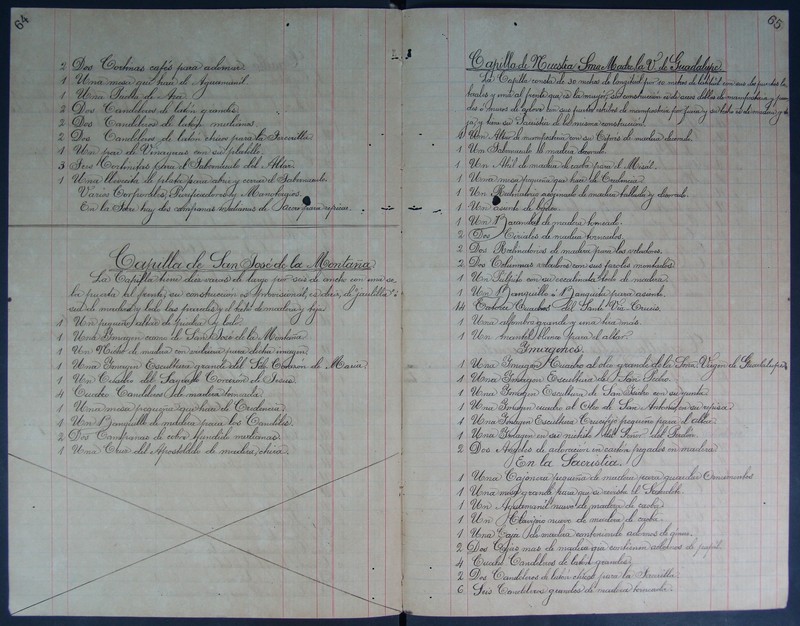 64
2 Dos Cortinas cafés para adornar.
1 Una mesa que hace de Aguamanil.
1 Una Piedra de Ara.
2 Dos Candeleros de latón grandes.
2 Dos Candeleros de latón medianos.
2 Dos Candeleros de latón chicos para la
1 Un par de Vinageras con su platillo.
3 Tres Cortinitas para el Tabernáculo del Altar.
1 Una llavecita de plata para abrir y cerrar el Sabernaculo.
Varios Corporales, Purificadores y Manotergios.
En la Torre hay dos campanas medianas de para repicar.
Capilla de San José de la Montaña.
La Capilla tiene diez varas de largo por seis de ancho con una so
la puerta al frente, su construcción es provisional, es decir, de
sus de madera y todo las paredes y el techo de madera y teja.
1 Un pequeño altar de piedra y lodo.
1 Una Ymagen de San José de la Montaña
1 Un Nicho de madera con vidriera para dicha imagen
1 Una Ymagen Escultura grande del Sdo. Corazon de Maria.
1 Un Cuadro del Sagrado Corazon de Jesus.
4 Cuatro Candeleros de madera torneada.
1 Una mesa pequeña que hace de Credencia.
1 Un Banquillo de madera para los
2 Dos Campanas de cobre fundido medianas.
1 Una Cruz del Apostolado de madera, chica.
65
Capilla de Nuestra Sma. Madre la V. de Guadalupe.
La Capilla consta de 30 metros de longitud por 20 metros de latitud con sus dos puertas la
terales y una al frente que es la mayor, su construcción es de
ja, y tiene su Sacristia de la misma construcción.
1 Un Altar de mamposteria con su Cipres de madera dorada.
1 Un Sabernaculo de madera dorado.
1 Un Atril de madera de caoba para el Misal.
1 Una mesa pequeña que hace de Credencia.
1 Un de madera tallada y dorado.
1 Un asiento de
1 Un de madera torneado.
2 Dos Ciriales de madera torneados.
2 Dos de madera para los
2 Dos Columnas con sus faroles montados.
1 Un Pulpito con su escalinata todo de madera.
1 Un Banquillo ó Banqueta para asiento.
14 Catorce Cuadros del Santo Via Crucis.
1 Una alfombra grande y una tira más.
1 Un mantel blanco para el altar.
Ymagenes.
1 Una Ymagen Cuadro al oleo grande de la Sma. Virgen de Guadalupe.
1 Una Ymagen Escultura de San Pedro.
1 Una Ymagen Escultura de San Ysidro con su yunta.
1 Una Ymagen cuadro al Oleo de San Antonio en su repisa.
1 Una Ymagen Escultura Crucifijo pequeño para el altar.
1 Una Ymagen en su nichito del Señor del Perdón.
2 Dos Angeles de adoracion en cartón pegados en madera
En la Sacristia.
1 Una Cajonera pequeña de madera para guardar Ornamentos
1 Una mesa grande para que se revista el Sacerdote.
1 Un Aguamanil nuevo de madera de caoba.
1 Un nuevo de madera de caoba.
1 Una Caja de madera conteniendo adornos de
2 Dos Cajas mas de madera que contienen adornos de papel.
4 Cuatro Candeleros de laton grandes.
2 Dos Candeleros de laton chicos para la
6 Seis Candeleros grandes de madera torneada.